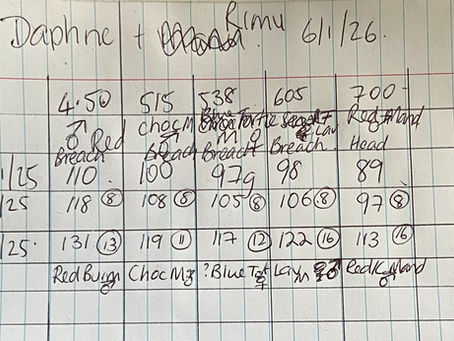 Daphne + Rimu 6/1/26.
4.50 515 538 605 700
♂ Red Choc M Blue Tortie Red Mand
Breach Breach Breach Breach Head
1/25 110 100 97g 98 89
/25 118 (8) 108 (8) 105 (8) 106 (8) 97 (8)
/25. 131 (13) 119 (11) 117 (12) 122 (16) 113 (16)
Red ♂ Choc ?Blue ♀ ♂ Red ♂